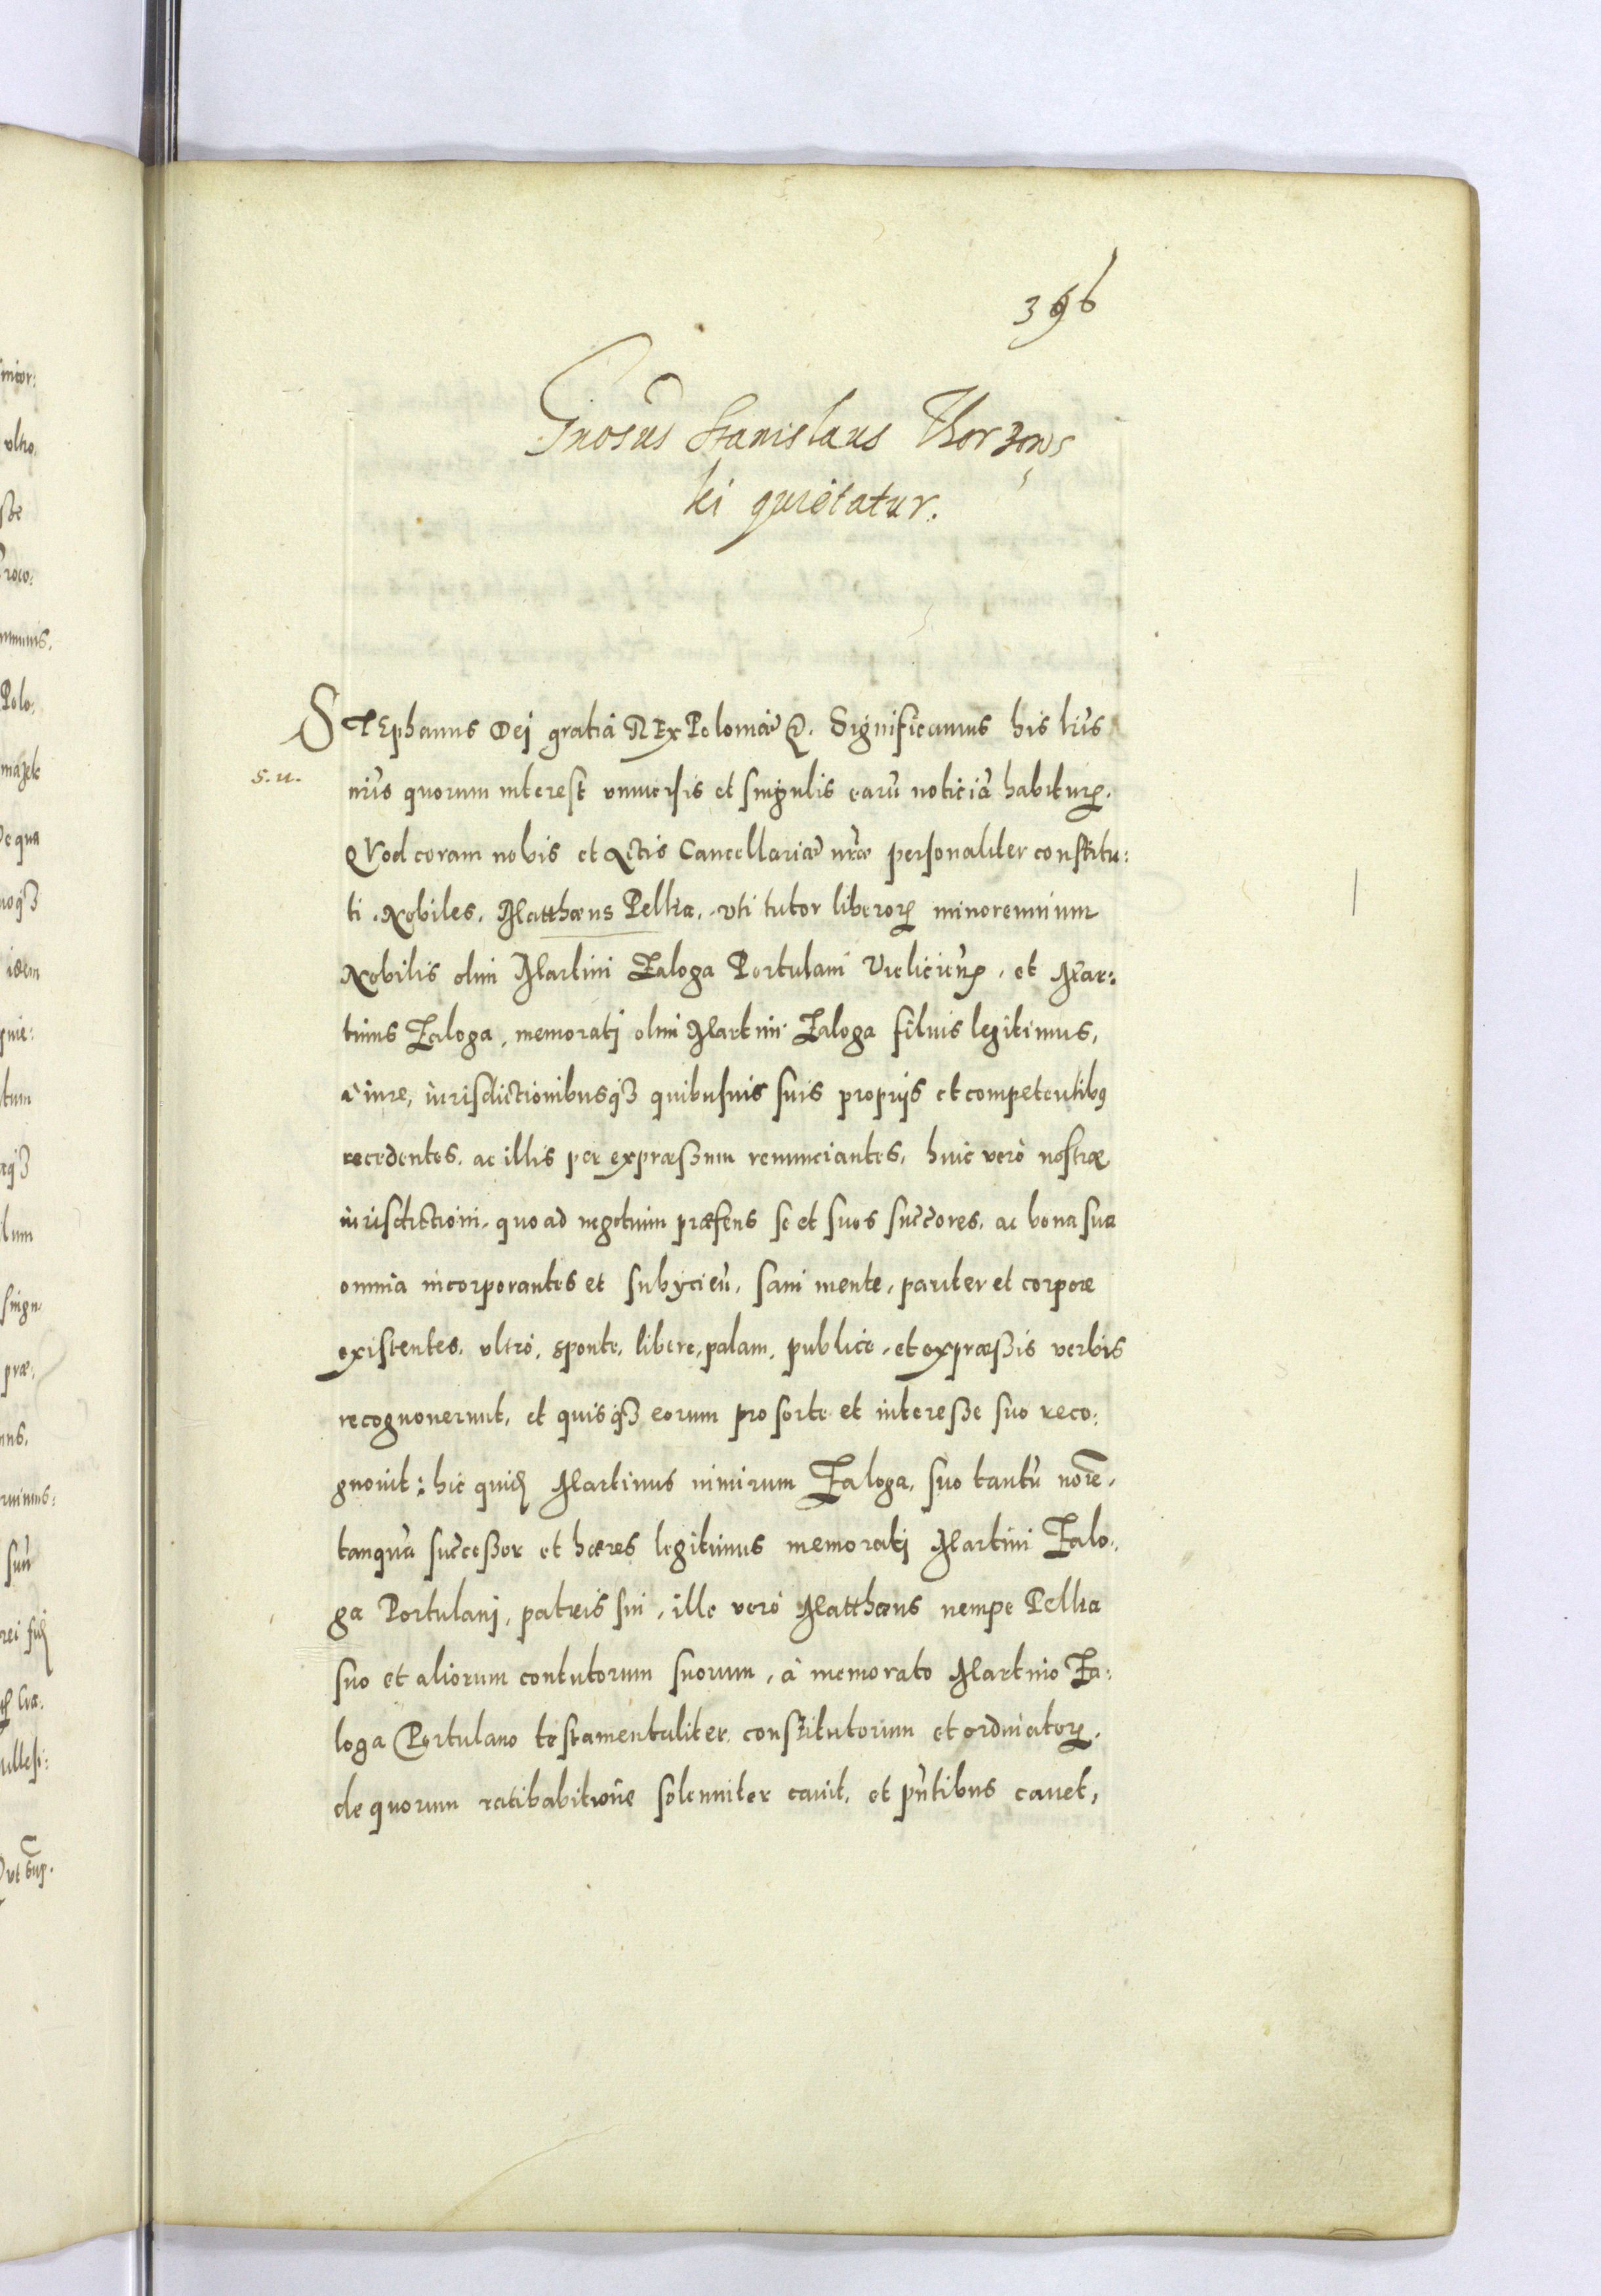 396
Gnosus Stanislaus Thorzows
ki quietatur.
STEphanus Dej gratiâ REx Poloniæ &. Significamus his lris
s. u.
nris quorum interest vniuersis et singulis earũ noticiã habiturꝝ.
QVod coram nobis et Actis Cancellariæ nræ personaliter constitu:
ti Nobiles. Matthæus Pellia, vti tutor liberorꝝ minorennium
Nobilis olim Martini Zaloga Portulani Vielicieñ, et Mar:
tinus Zaloga, memoratj olim Martini Zaloga filius legitimus,
à iure, iurisdictionibusqꝫ quibusuis suis proprijs et competentibꝰ
recedentes, ac illis per expræßum renunciantes, huic verò nostræ
iurisdictioni, quo ad negotium præsens se et suos succores, ac bona sua
omnia incorporantes et subijcieñ, sani mente, pariter et corpore
existentes, vltrò, sponte, libere, palam, publicè, et expræßis verbis
recognouerunt, et quisqꝫ eorum pro sorte et intereße suo reco:
gnouit: hic quidẽ Martinus nimirum Zaloga, suo tantũ noĩe,
tanquã succeßor et hæres legitimus memoratj Martini Zalo:
ga Portulanj, patris sui, ille verò Matthæus nempe Pellia
suo et aliorum contutorum suorum, à memorato Martino Za:
loga Portulano testamentaliter constitutorum et ordinatorꝝ.
de quorum ratihabitiõne solenniter cauit, et pñtibus cauet,